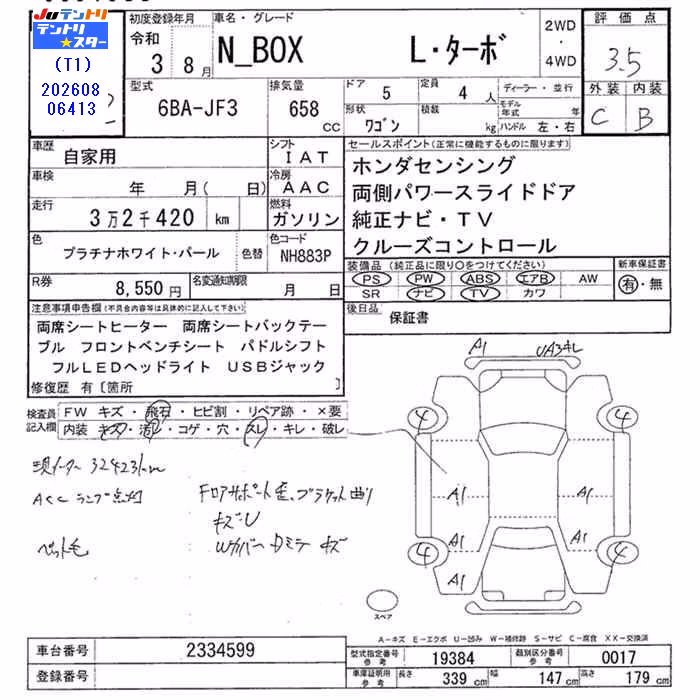 Juテントリ
テントリ
スター
(T1)
202608
06413
初度登録年月
令和
3 8月
車名・グレード
N_BOX L・ターボ
2WD
・
4WD
評価点
3.5
外装 内装
C B
型式
6BA-JF3
排気量
658
CC
ドア
5
定員
4 人
形状
ワゴン
積載
kg
ディーラー・並行
モデル
年式 年
ハンドル 左・右
車歴
自家用
シフト
IAT
車検
年 月( 日)
冷房
AAC
走行
3万2千420 km
燃料
ガソリン
色
プラチナホワイト・パール
色替
色コード
NH883P
R券
8,550円
名変通知期限
月 日
セールスポイント(正常に機能するものに限ります)
ホンダセンシング
両側パワースライドドア
純正ナビ・TV
クルーズコントロール
装備品 (純正品に限り○をつけてください)
PS PW ABS エアB AW
SR ナビ TV カワ
新車保証書
有・無
後日品
保証書
注意事項申告欄(不具合内容等は具体的に記入して下さい)
両席シートヒーター 両席シートバックテー
ブル フロントベンチシート パドルシフト
フルLEDヘッドライト USBジャック
修復歴 有〔箇所 〕
検査員
記入欄
FW キズ・飛石・ヒビ割・リペア跡・×要
内装 キズ・汚レ・コゲ・穴・スレ・キレ・破レ
現メーター 32423km
ACC ランプ点灯
ペット毛
Fロアサポート歪、ブラケット曲り
キズU
Wカバー カミテ キズ
A1
UA34L
4
4
A1
A1
A1
A1
4
4
A1
スペア
A-キズ E-エクボ U-凹み W-補修跡 S-サビ C-腐食 XX-交換済
車台番号
2334599
登録番号
型式指定番号
参考
19384
類別区分番号
参考
0017
車庫証明用
参考
長さ
339 cm
幅
147 cm
高さ
179 cm